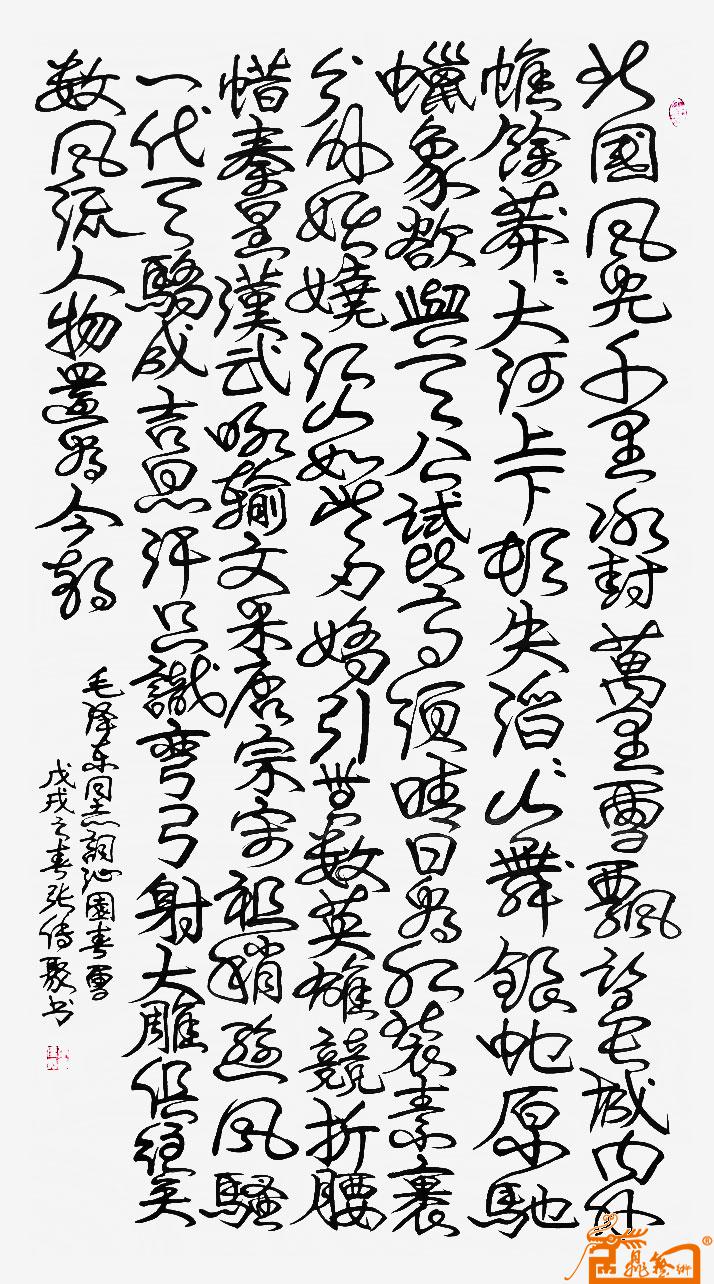 北國風光千里冰封萬里雪飄望長城内外
惟餘莽々大河上下頓失滔々山舞銀蛇原馳
蠟象欲與天公試比高須晴日看紅裝素裹
分外妖嬈江山如此多嬌引無數英雄競折腰
惜秦皇漢武略輸文采唐宗宋祖稍遜風騷
一代天驕成吉思汗只識彎弓射大雕俱往矣
数風流人物還看今朝
毛泽东同志詞沁園春雪
戊戌之春张传聚书